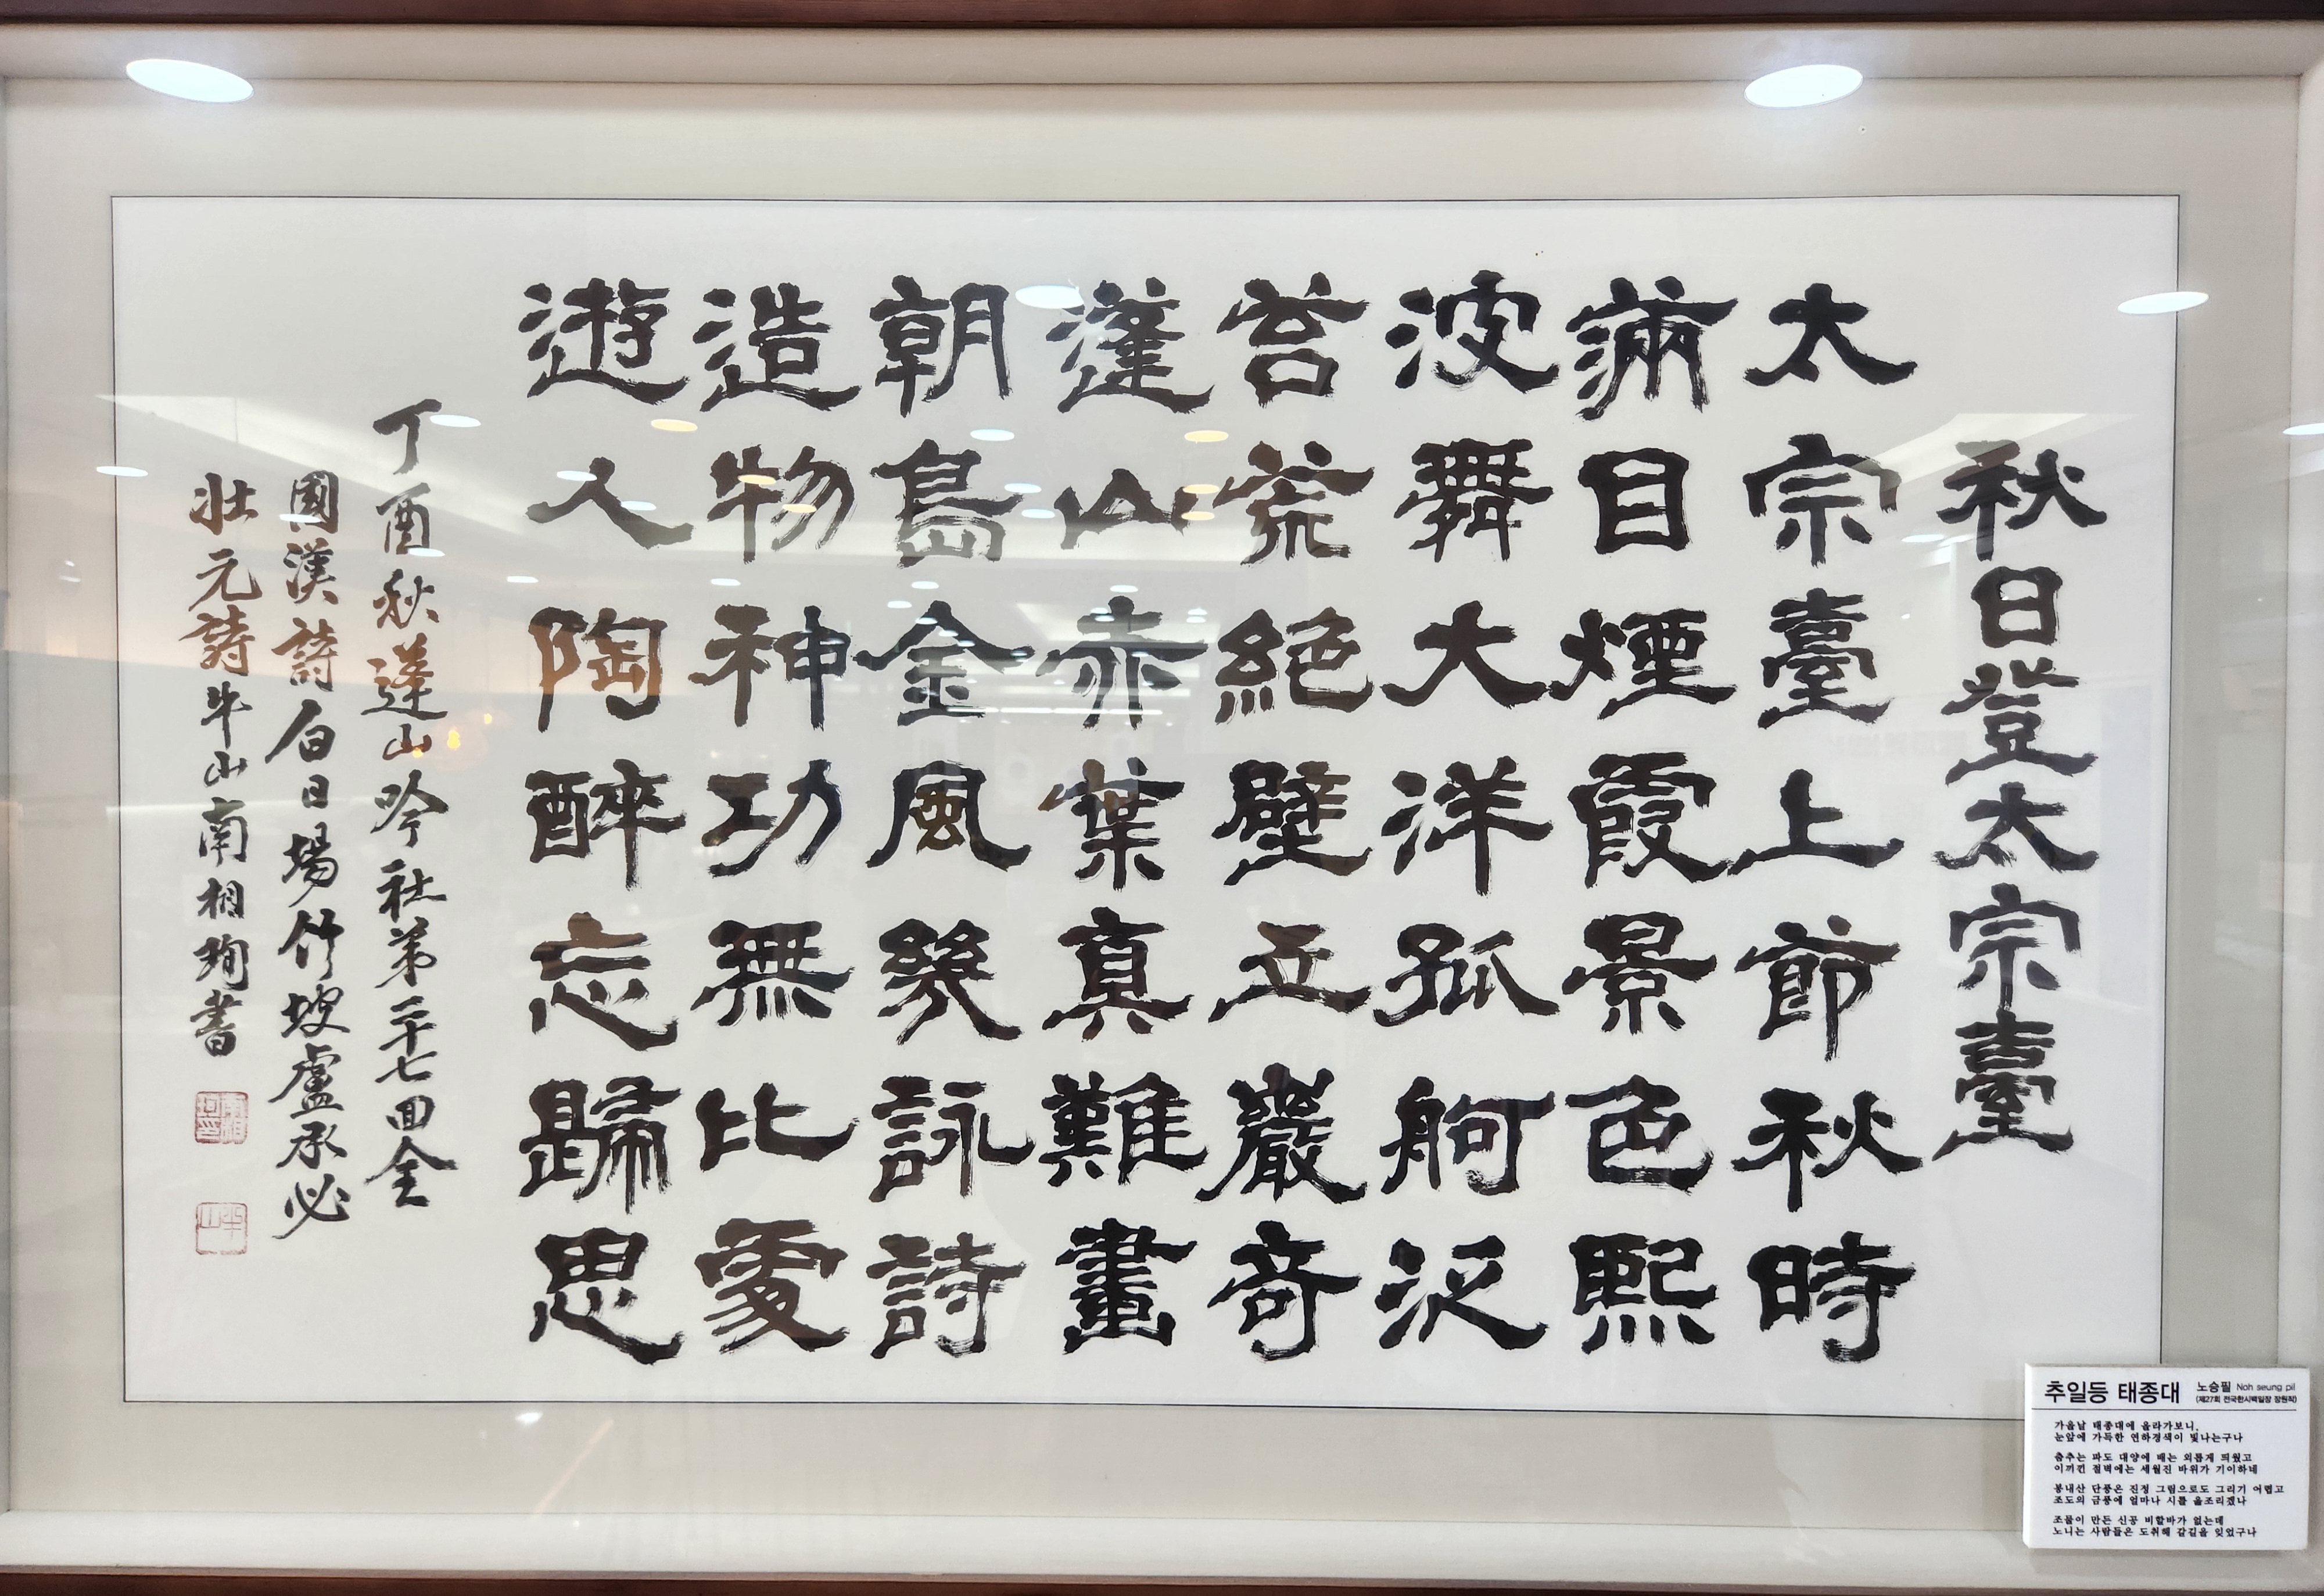 秋日登太宗臺
太宗臺上節秋時
滿目煙霞景色熙
波舞大洋孤舸泛
苔荒絶壁立巖奇
蓬山赤葉真難畫
朝島金風幾詠詩
造物神功無比處
遊人陶醉忘歸思
丁酉秋蓬山吟社第二十七回全
國漢詩白日場竹坡盧承必
壯元詩 半山南相珣書
추일등 태종대 노승필 Noh seung pil
(제27회 전국한시백일장 장원작)
가을날 태종대에 올라가보니,
눈앞에 가득한 연하경색이 빛나는구나
춤추는 파도 대양에 배는 외롭게 띄웠고
이끼낀 절벽에는 세월진 바위가 기이하네
봉내산 단풍은 진정 그림으로도 그리기 어렵고
조도의 금풍에 얼마나 시를 읊조리겠나
조물이 만든 신공 비할바가 없는데
노니는 사람들은 도취해 갈길을 잊었구나